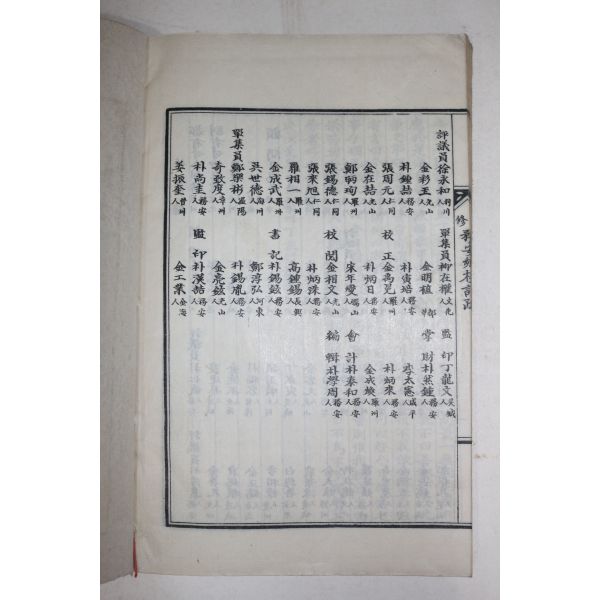 評議員徐永和利川人 單集員柳在權文化人 監印丁龍文人
金彩玉光山人 金明植人 掌財朴然鍾務安人
朴鍾喆務安人 朴寅培務安人 李太憲咸平人
張周元仁同人 校正金禹羅州人 朴炳來務安人
金在喆光山人 朴炳日務安人 金成煥羅州人
鄭炳珣羅州人 宋年燮礪山人 會計朴泰和務安人
張錫德仁同人 校閱金相文光山人 編輯朴學周務安人
張來旭仁同人 朴炳務安人
羅相一羅州人 高鍾錫長興人
金成武羅州人 書記朴錫鉉務安人
吳世德海州人 鄭淳弘河東人
單集員鄭樂彬溫陽人 朴錫胤務安人
奇致度幸州人 金亮鉉光山人
朴高圭務安人 監印朴漢喆務安人
姜振奎晋州人 金工業金海人